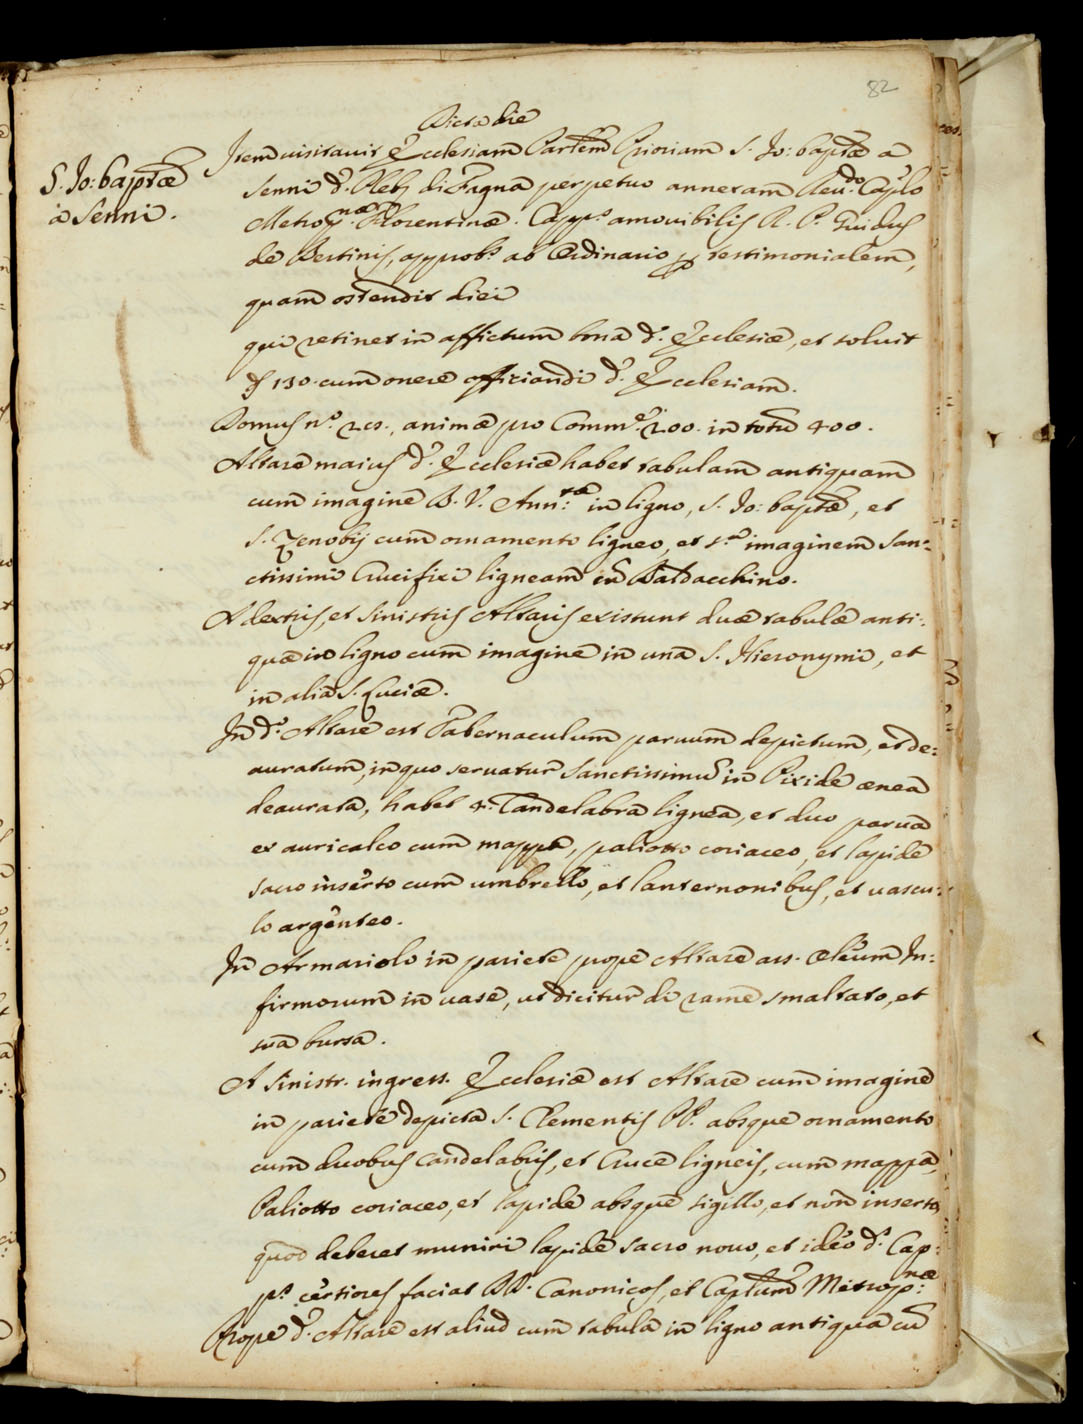 82
Dicta die
Item uisitauit Ecclesiam Par.lem Prioriam S. Jo: baptæ a
S. Jo: baptæ
a Senni.
Senni d. Pleb. di Fagna perpetuo annexam Reu.do Cap.lo
Metrop.næ Florentinæ. Capp.s amouibilis R. P. Guidus
de Bertinis, approb.s ab Ordinario p testimonialem,
quam ostendit
qui retinet in affictum bona d. Ecclesiæ, et soluit
130. cum onere officiandi d. Ecclesiam.
Domus n.o animæ pro Comm.e 200. in totu 400.
Altare maius d. Ecclesiæ habet tabulam antiquam
cum imagine B. V. Ann.tæ in ligno, S. Jo: baptæ, et
S. Zenobij cum ornamento ligneo, et imaginem San-
ctissimi Crucifixi ligneam cu Baldacchino.
A dextris, et sinistris Altaris existunt duæ tabulæ anti-
quæ in ligno cum imagine in una S. Hieronymi, et
in alia S. Luciæ.
In d. Altare est Tabernaculum paruum depictum, et de-
auratum, in quo seruatur Sanctissimu in Pixide ænea
deaurata, habet 4. Candelabra lignea, et duo parua
ex auricalco cum mappa, paliotto coriaceo, et lapide
sacro inserto cum umbrello, et lanternonibus, et uascu-
lo argenteo.
In Armariolo in pariete prope Altare ass. Oleum In-
firmorum in uase, ut dicitur di rame smaltato, et
sua bursa.
A sinistr. ingress. Ecclesiæ est Altare cum imagine
in pariete depicta S. Clementis PP. absque ornamento
cum duobus candelabris, et Cruce ligneis, cum mappa,
Paliotto coriaceo, et lapide absque sigillo, et non inserto,
quod deberet muniri lapide sacro nouo, et ideo d. Cap-
p.s certiores faciat RR. Canonicos, et Cap.lum Metrop.næ
Prope d. Altare est aliud cum tabula in ligno antiqua cu